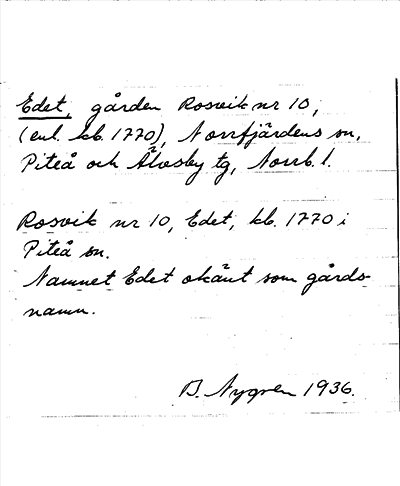 Edet, gården Rosvik nr 10,
(enl. kb. 1770), Norrfjärdens sn,
Piteå och Älvsby tg, Norrb. l.
Rosvik nr 10, Edet, kb. 1770 i
Piteå sn.
Namnet Edet okänt som gårds-
namn.
B. Nygren 1936.